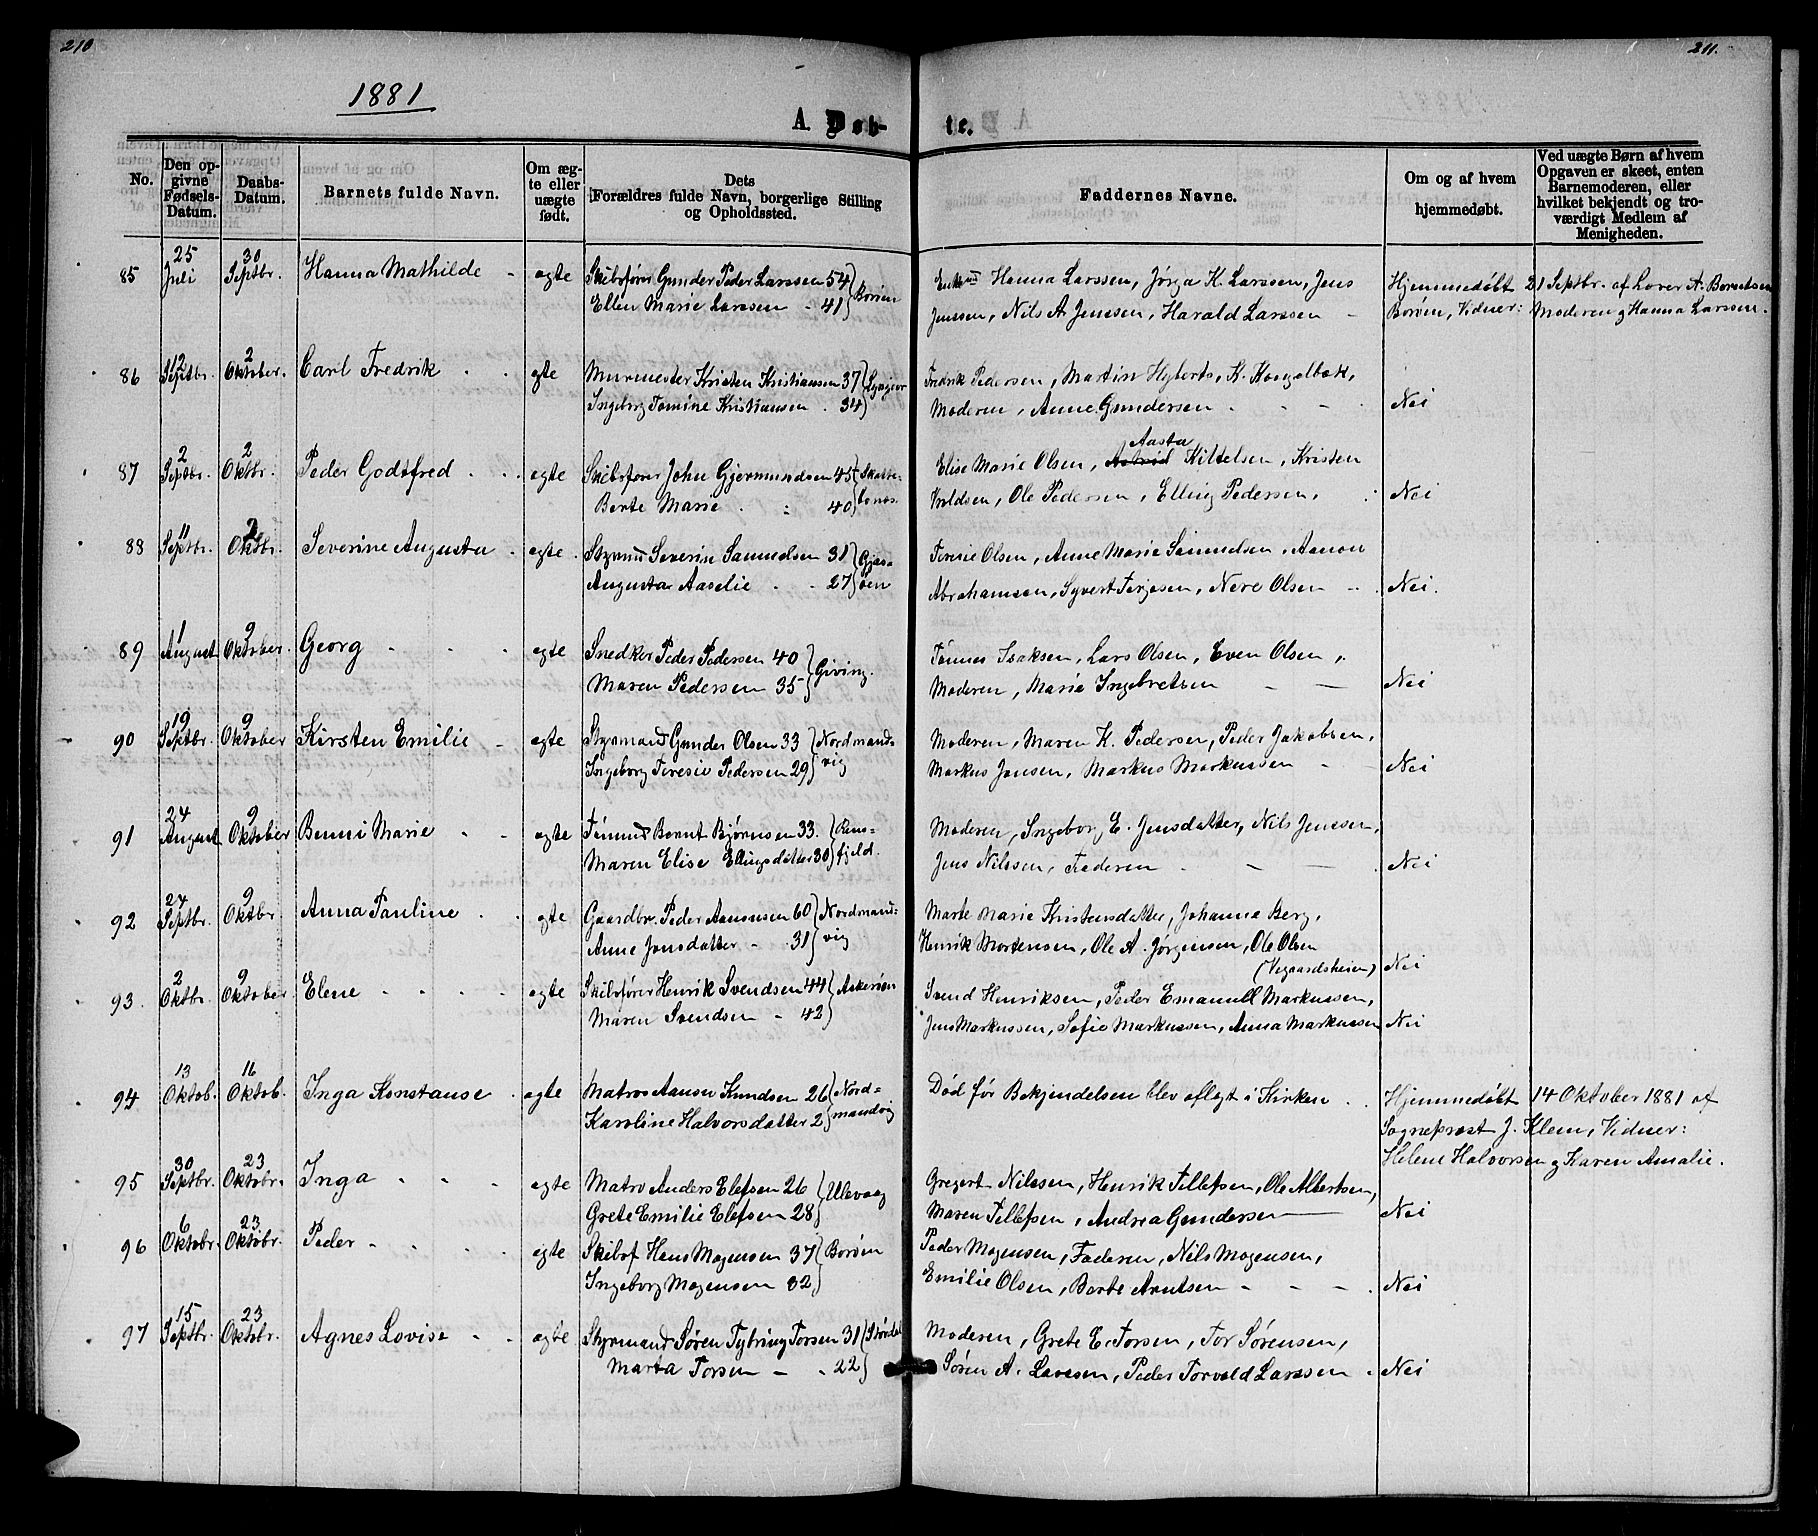 210
211.
1881
A. Døb-
te.
No.
Den op-
givne
Fødsels-
Datum.
Daabs-
Datum.
Barnets fulde Navn.
Om æg-
te eller
uægte
født.
Dets
Forældres fulde Navn, borgerlige Stilling
og Opholdssted.
Faddernes Navne.
Om og af hvem
hjemmedøbt.
Ved uægte Børn af hvem
Opgaven er skeet, enten
Barnemoderen, eller
hvilket bekjendt og tro-
værdigt Medlem af
Menigheden.
85 25 Juli 30 Septbr. Hanna Mathilde - ægte Skibsfører Gunder Peder Larssen 54 Borøen
Ellen Marie Larssen - 41
Hanna Larssen, Jørga K. Larssen, Jens
Jenssen, Nils A Jenssen, Harald Larssen -
Hjemmedøbt 21 Septbr. af Lærer A. Berntsen
Borøen, Vidner: Moderen og Hanna Larssen.
86 12 Septbr. 2 Oktober. Carl Fredrik - - ægte Murmester Kristen Kristiansen 37 Lyngør
Ingeborg Tomine Kristiansen . 34
Fredrik Pedersen, Martin Hyberts, K. Kongelbæk,
Moderen, Anne Gundersen - - - Nei
87 2 Septbr. 2 Oktbr. Peder Godtfred - - ægte Skibsfører John Gjermundsen 45
Berte Marie . " 40
Aasta
Elise Marie Olsen, Astrid Kittelsen, Kristen
Ole Pedersen, Elling Pedersen, . Nei
88 11 Septbr. 2 Oktbr. Severine Augusta . ægte . Styrmd Severin Samuelsen 31 Gjæs-
Augusta Aaselie - - 27 øen
Teresie Olsen, Anne Marie Samuelsen, Aanon
Abrahamsen, Syvert Terjesen, Nere Olsen - . Nei.
89 1 August 9 Oktober. Georg - - - ægte Snedker Peder Pedersen 40 Giving.
Maren Pedersen 35
Tønnes Isaksen, Lars Olsen, Even Olsen,
Moderen, Marie Ingebretsen - - Nei
90 19 Septbr. 9 Oktober Kirsten Emilie - ægte Styrmand Gunder Olsen 33 Nordmand-
Ingeborg Teresie Pedersen 29 vig
Moderen, Maren K. Pedersen, Peder Jakobsen,
Markus Jensen, Markus Markussen - - Nei
91 24 August 9 Oktober Benni Marie - - ægte Tømmd Bernt Bjørnsen 33.
Maren Elise Ellingsdatter 30 fjeld.
Moderen, Ingeborg E. Jensdatter, Nils Jenssen,
Jens Nilssen, Faderen . - - Nei
92 24 Septbr. 9 Oktbr. Anna Pauline . - ægte Gaardbr. Peder Aanonsen 60 Nordmand-
Anne Jensdatter - 31 vig
Marte Marie Kristensdatter, Johanna Berg,
Henrik Mortensen, Ole A. Jørgensen, Ole Olsen
(Vegaardsheien) Nei
93. 2 Oktbr. 9 Oktober Elene - - - - ægte Skibsfører Henrik Svendsen 44 Askerøen
Maren Svendsen - 42
Svend Henriksen, Peder Emanuell Markussen,
Jens Markussen, Sofie Markussen, Anna Markussen Nei
94 13 Oktob. 16 Oktob. Inga Konstanse . ægte Matros Aanen Knudsen 26 Nord-
Karoline Halvorsdatter 2 mandvig
Død før Bekjendelsen blev aflagt i Kirken . . Hjemmedøbt 14 Oktober 1881 af
Sogneprest J. Klem, Vidner:
Helene Halvorsen og Karen Amalie.
95 30 Septbr. 23 Oktobr. Inga - - - ægte Matro Anders Elefsen 26 Ulevaag
Grete Emilie Elefsen 28
Gregert Nilssen, Henrik Tellefsen, Ole Albertsen,
Maren Tellefsen, Andrea Gundersen — Nei
96 6 Oktobr. 23 Oktobr. Peder - - - ægte Skibsf Hans Mogensen 37 Borøen
Ingeborg Mogensen 32
Peder Mogensen, Faderen, Nils Mogensen,
Emilie Olsen, Berte Arntsen - - - . Nei
97 15 Septbr. 23 Oktobr. Agnes Lovise - - ægte Styrmand Søren Tybring Torsen 31
Marta Torsen - - 22
Moderen, Grete E. Torsen, Tor Sørensen,
Søren A. Larssen, Peder Torvald Larssen . Nei